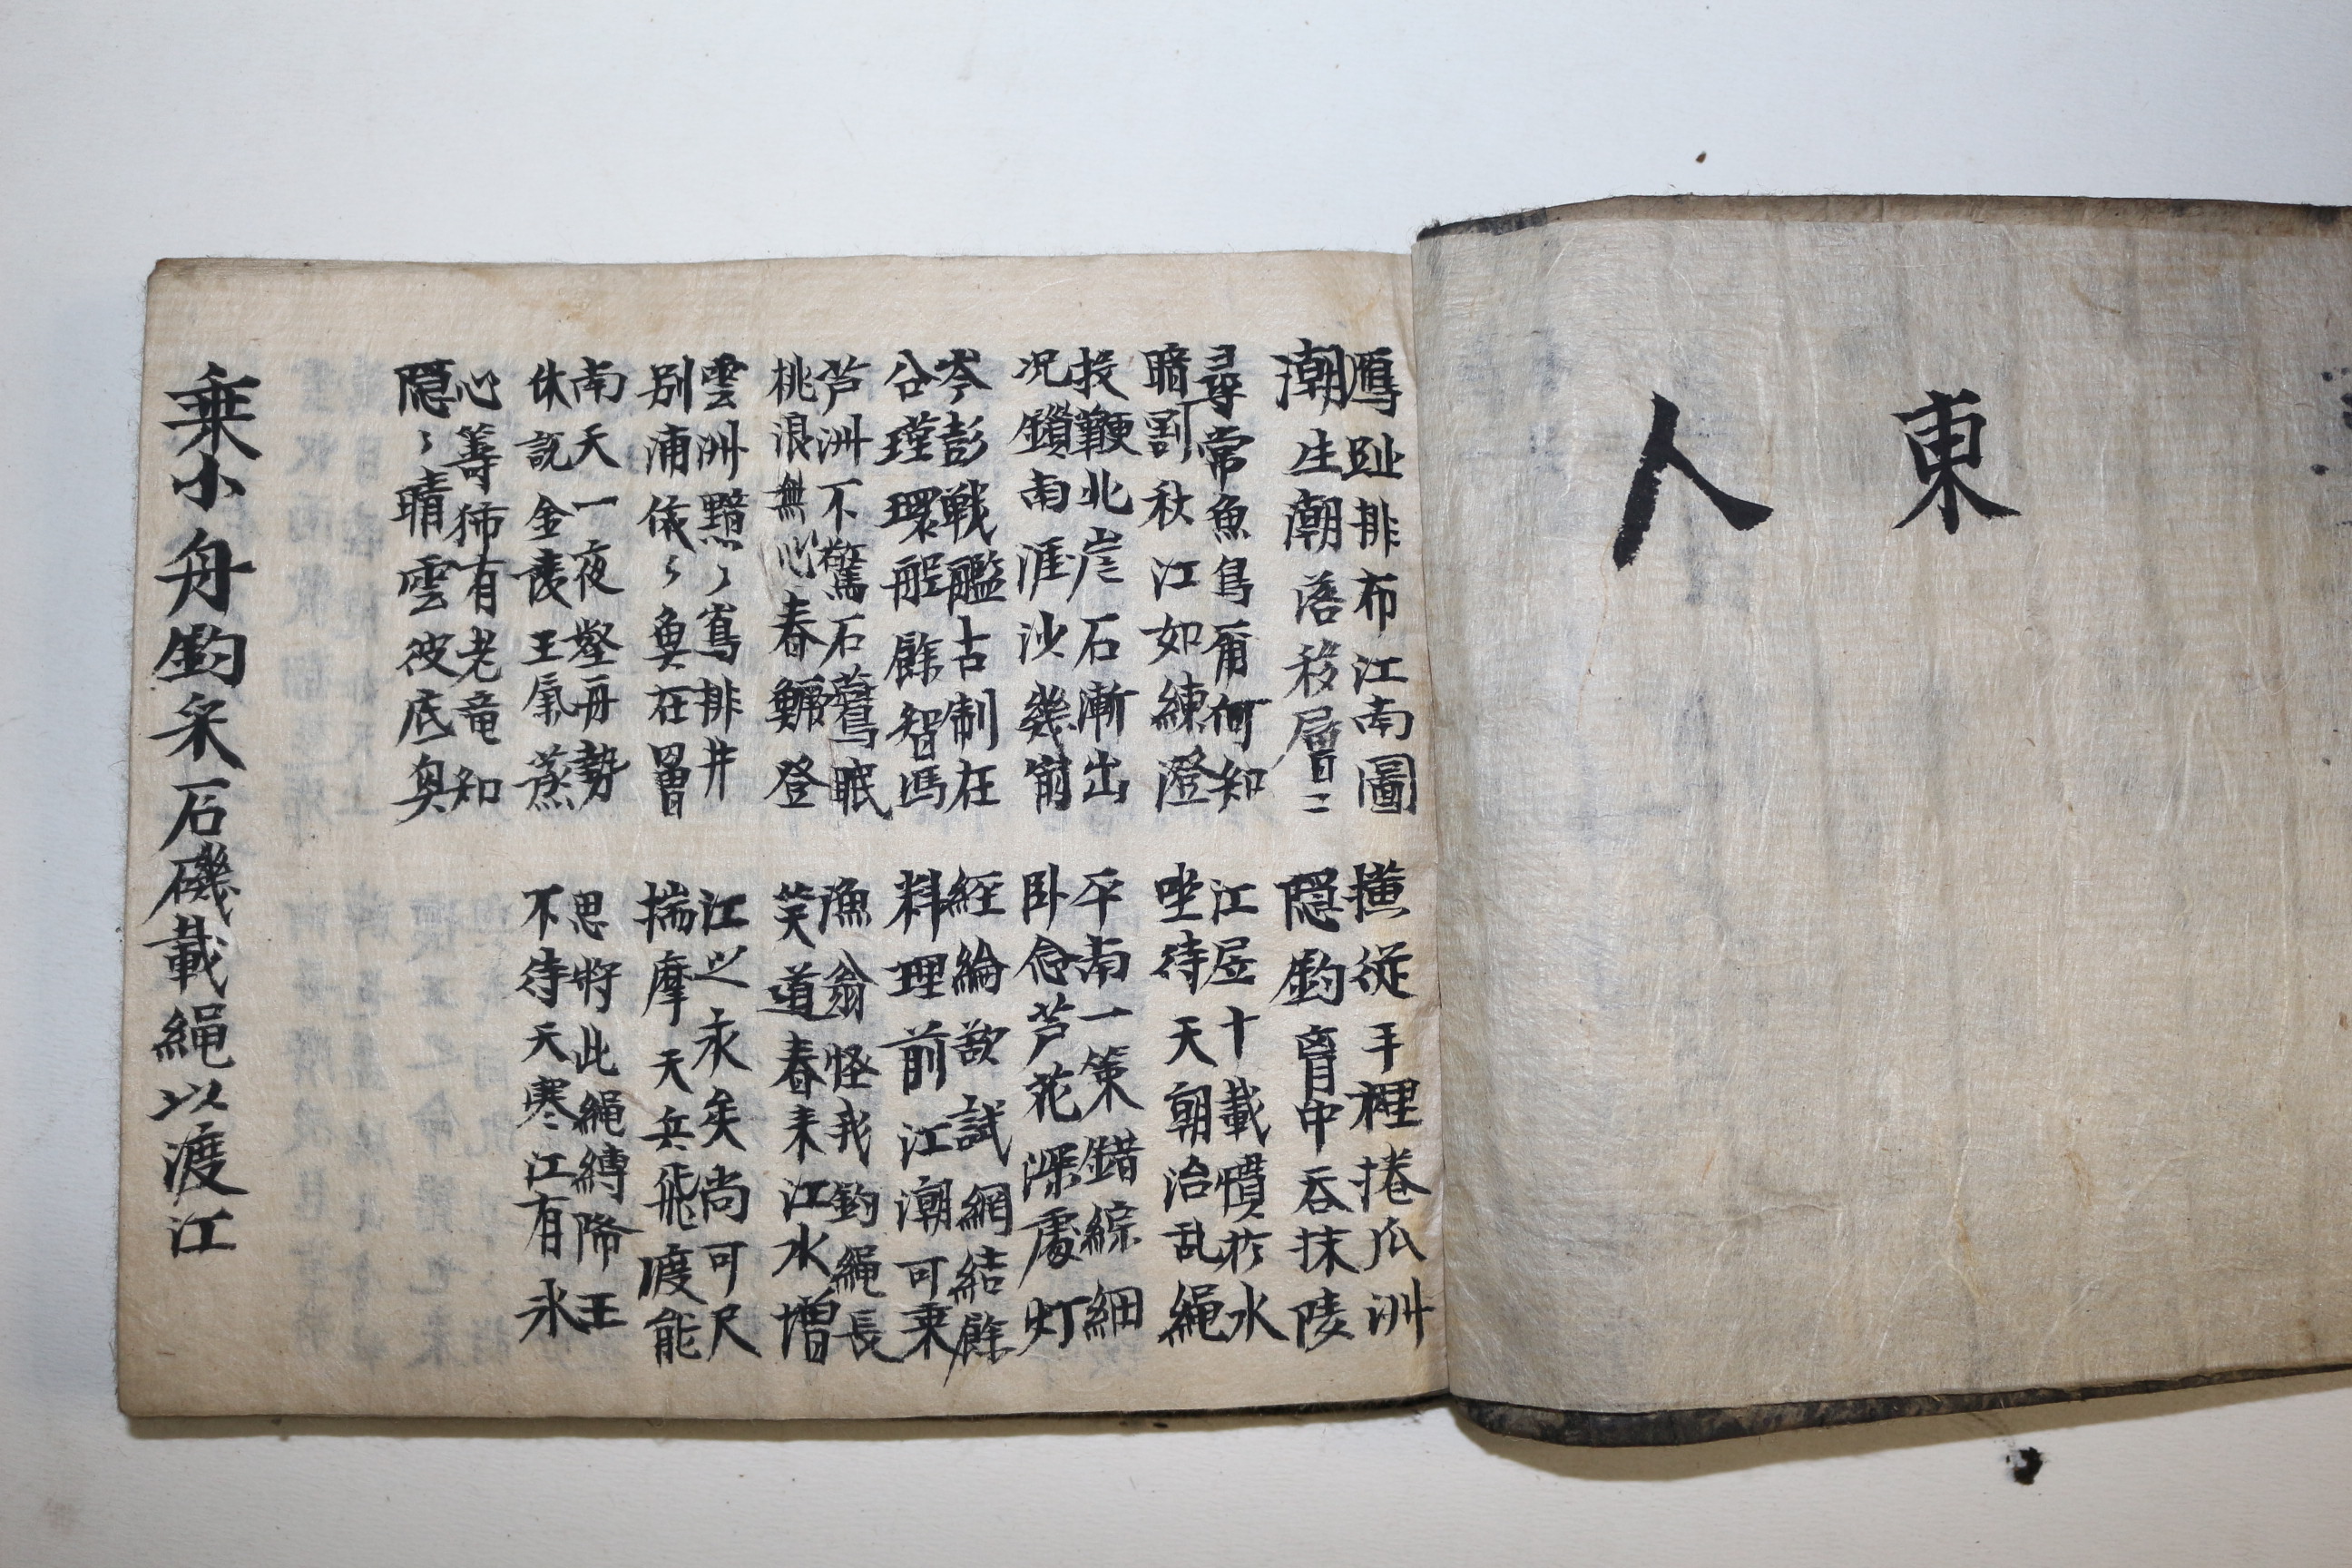 東
人
鴈趾排布江南圖
潮生潮落移層〻
橫從手裡捲瓜洲
隱釣胷中吞抹陵
尋常魚鳥爾何知
暗割秋江如練澄
江居十載慣於水
坐待天朝治乱繩
投鞭北岸石漸出
况鎖南涯沙幾崩
平南一策錯綜細
卧念芦花深處灯
岑彭戰艦古制在
公瑾環船餘智馮
經綸欲試網結餘
料理前江潮可乘
芦洲不驚石鷺眠
桃浪無心春鯿登
漁翁怪我釣繩長
笑道春来江水增
雲洲黯〻鳥排井
别浦依〻魚在罾
江之永矣尚可尺
揣摩天兵飛渡能
南天一夜壑舟勢
休說金陵王氣蒸
思將此繩縛降王
不待天寒江有氷
心籌獨有老竜知
隱〻晴雲彼底興
乘小舟釣采石磯載繩以渡江